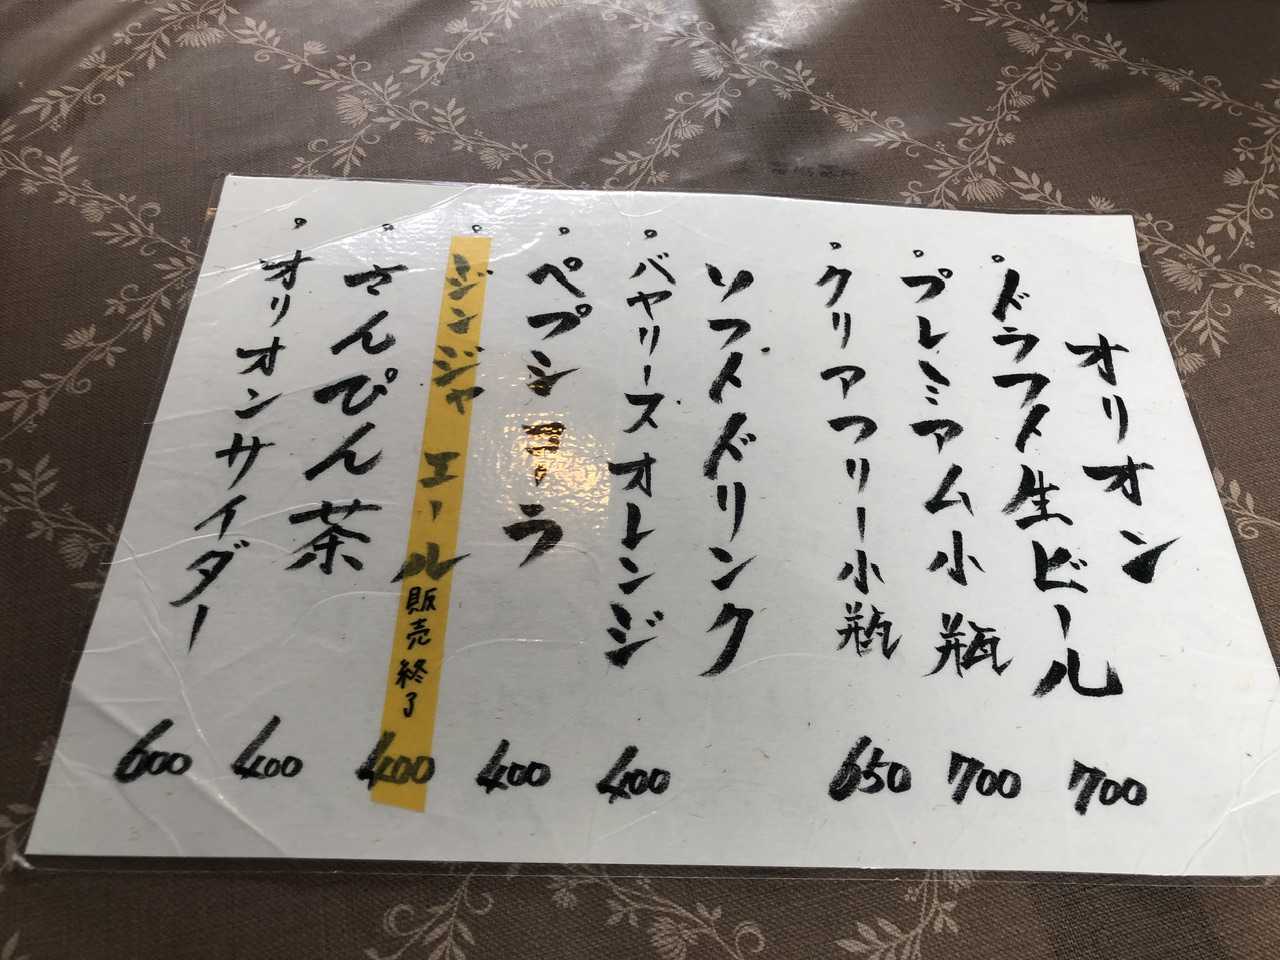 オリオン
・ドラフト生ビール 700
・プレミアム小瓶 700
・クリアフリー小瓶 650
ソフトドリンク
・バヤリースオレンジ 400
・ペプシコーラ 400
・ジンジャエール 販売終了 400
・さんぴん茶 400
・オリオンサイダー 600